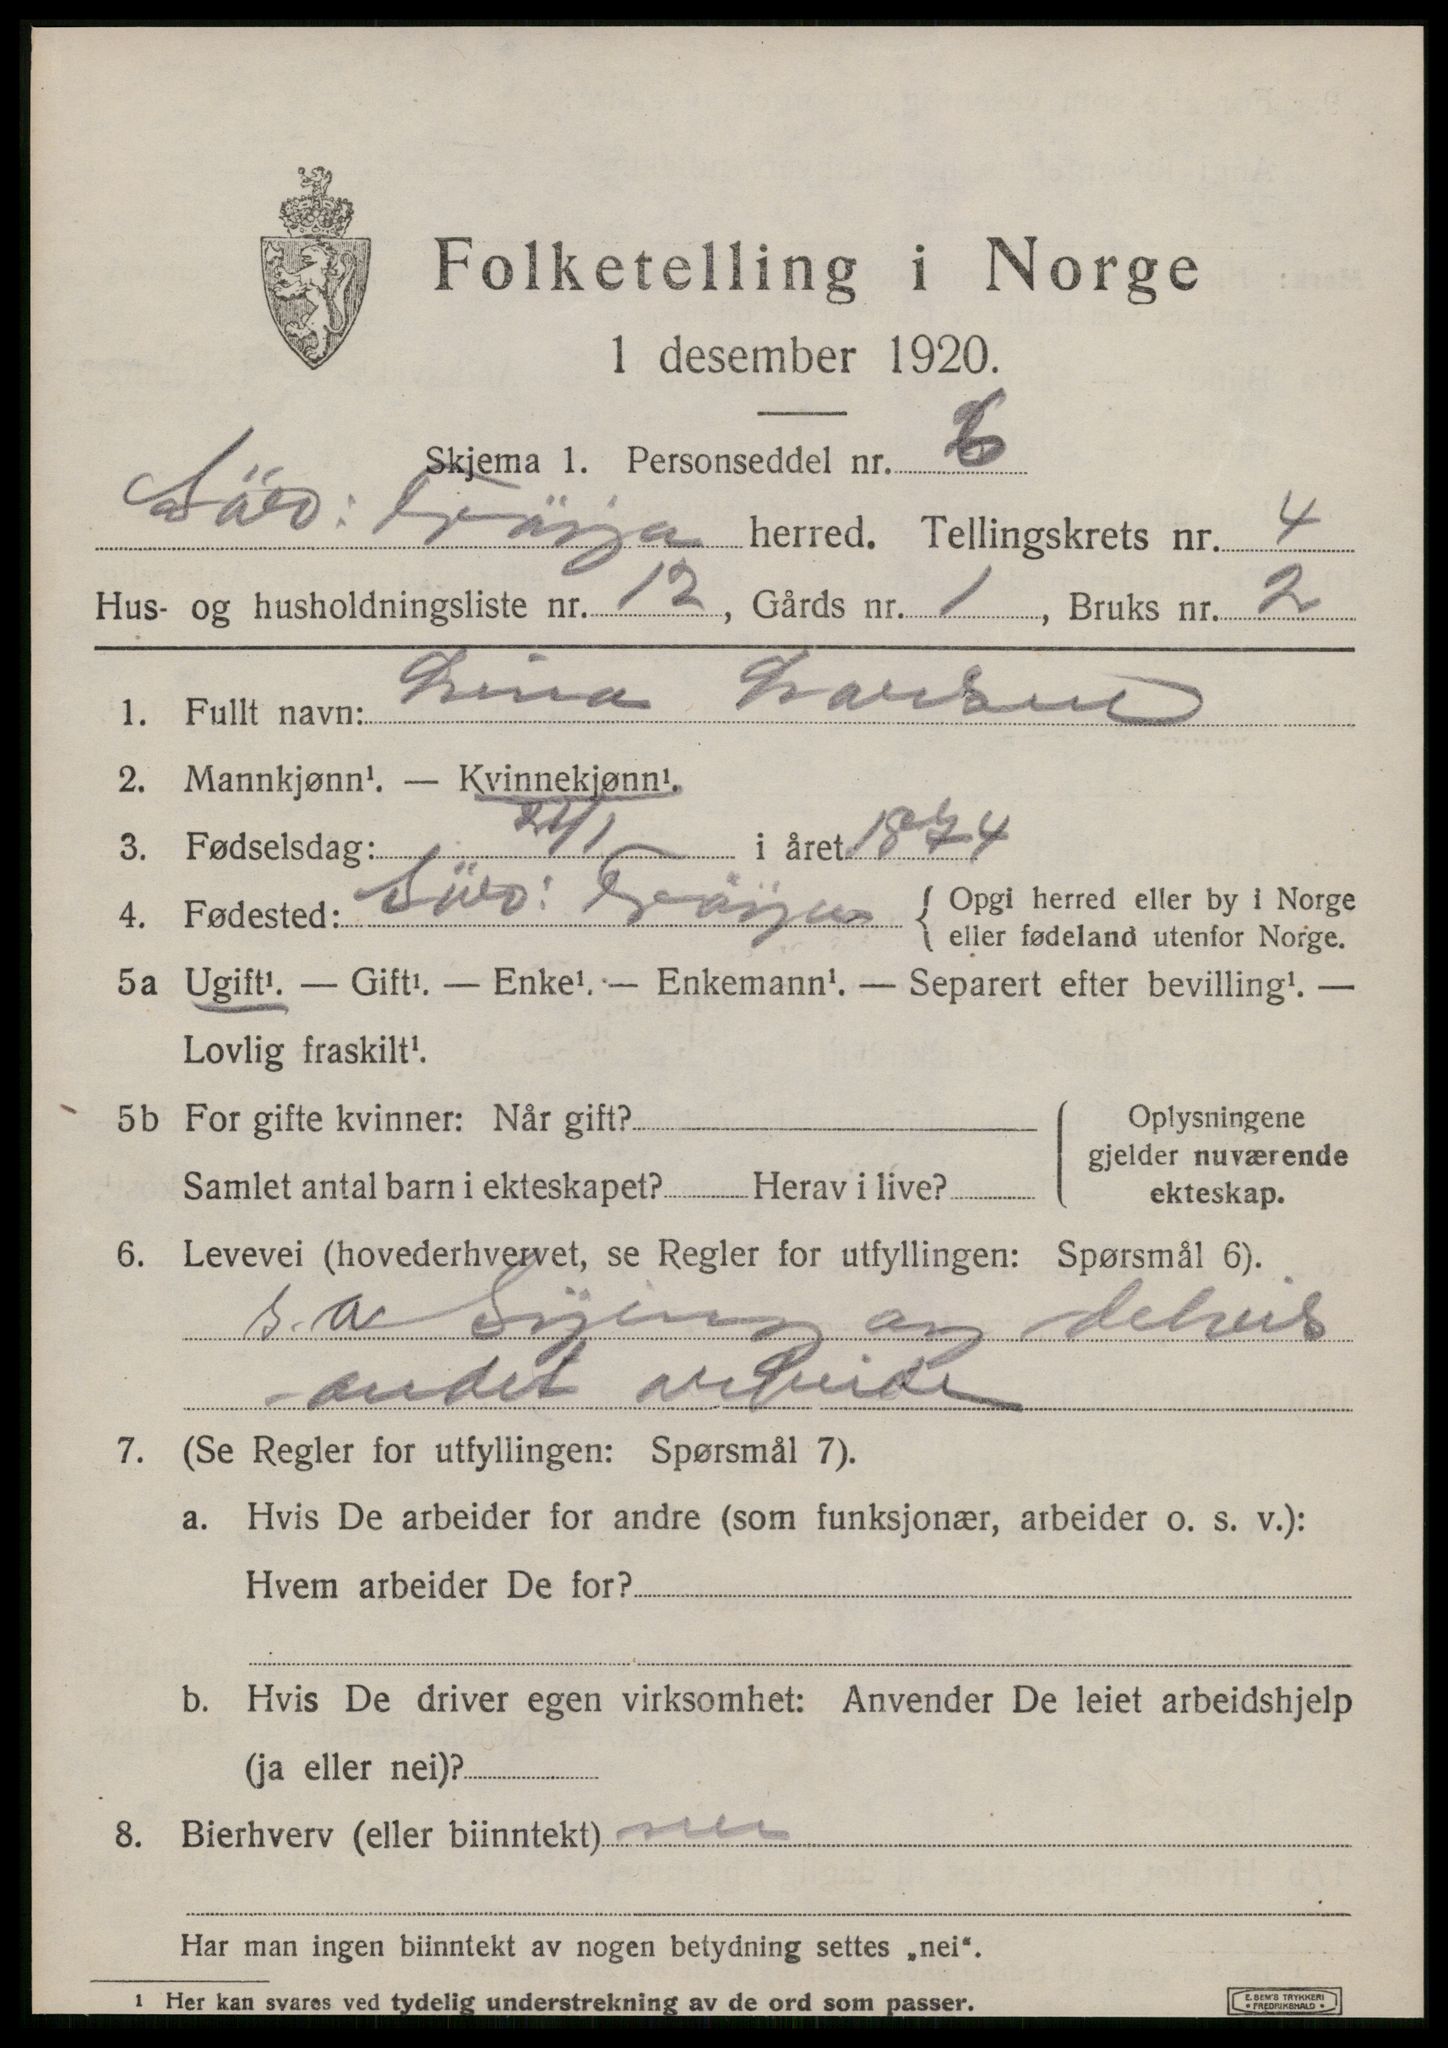 Folketelling i Norge
1 desember 1920.
Skjema 1. Personseddel nr. 6
Sörd: Fröya herred. Tellingskrets nr. 4
Hus- og husholdningsliste nr. 12, Gårds nr. 1, Bruks nr. 2
1. Fullt navn: Lina Larsen
2. Mannkjønn¹. — Kvinnekjønn¹.
3. Fødselsdag: /1 i året 1874
4. Fødested: Sörd: Fröya { Opgi herred eller by i Norge
eller fødeland utenfor Norge.
5a Ugift¹. — Gift¹. — Enke¹. — Enkemann¹. — Separert efter bevilling¹. —
Lovlig fraskilt¹.
5b For gifte kvinner: Når gift? { Oplysningene
gjelder nuværende
Samlet antal barn i ekteskapet? Herav i live? ekteskap.
6. Levevei (hovederhvervet, se Regler for utfyllingen: Spørsmål 6).
s. a Sying og delvis
andet arbeide
7. (Se Regler for utfyllingen: Spørsmål 7).
a. Hvis De arbeider for andre (som funksjonær, arbeider o. s. v.):
Hvem arbeider De for?
b. Hvis De driver egen virksomhet: Anvender De leiet arbeidshjelp
(ja eller nei)?
8. Bierhverv (eller biinntekt) nei
Har man ingen biinntekt av nogen betydning settes „nei“.
1 Her kan svares ved tydelig understrekning av de ord som passer.
E. SEM'S TRYKKERI
• FREDRIKSHALD •